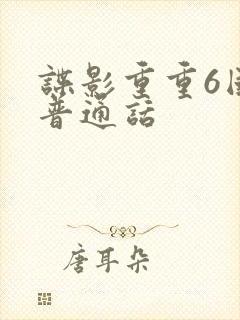 諜影重重6
普通話
唐耳朵